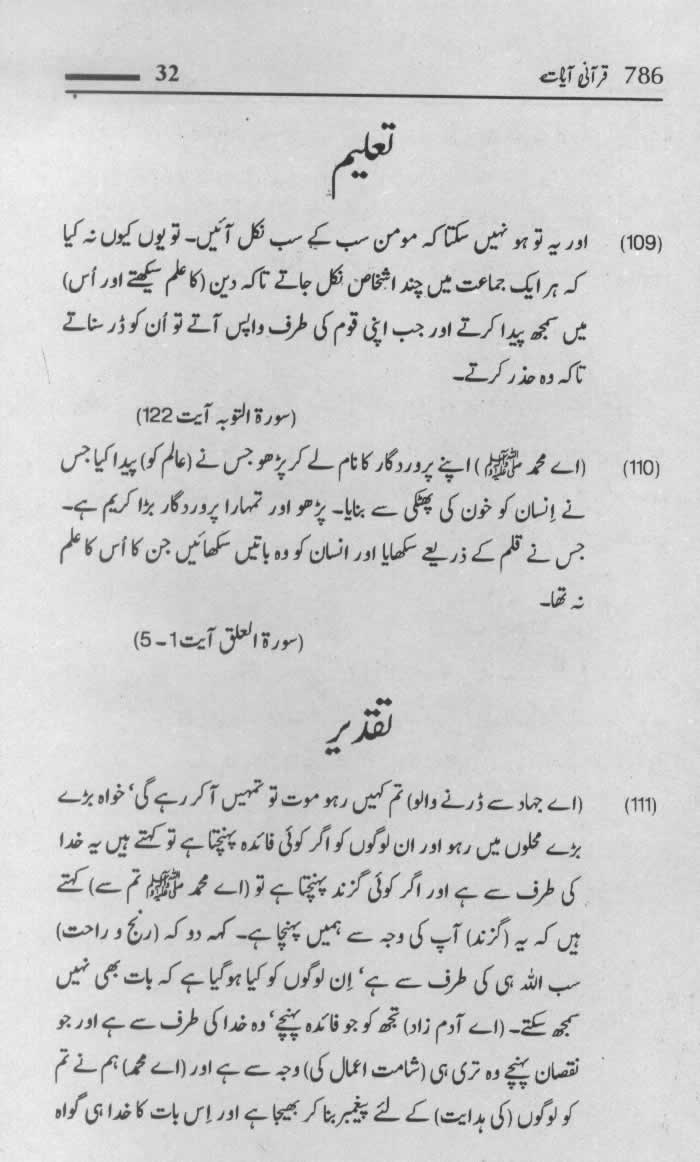 786 قرآنی آیات 32
تعلیم
(109) اور یہ تو ہو نہیں سکتا کہ مومن سب کے سب نکل آئیں۔ تو یوں کیوں نہ کیا
کہ ہر ایک جماعت میں چند اشخاص نکل جاتے تاکہ دین (کا علم سیکھتے اور اُس)
میں سمجھ پیدا کرتے اور جب اپنی قوم کی طرف واپس آتے تو اُن کو ڈر سناتے
تاکہ وہ حذر کرتے۔
(سورۃ التوبہ آیت 122)
(110) (اے محمد ﷺ) اپنے پروردگار کا نام لے کر پڑھو جس نے (عالم کو) پیدا کیا جس
نے اِنسان کو خون کی پھٹکی سے بنایا۔ پڑھو اور تمہارا پروردگار بڑا کریم ہے۔
جس نے قلم کے ذریعے سکھایا اور انسان کو وہ باتیں سکھائیں جن کا اُس کا علم
نہ تھا۔
(سورۃ العلق آیت 1 ۔ 5)
تقدیر
(111) (اے جہاد سے ڈرنے والو) تم کہیں رہو موت تو تمہیں آ کر رہے گی‘ خواہ بڑے
بڑے محلوں میں رہو اور ان لوگوں کو اگر کوئی فائدہ پہنچتا ہے تو کہتے ہیں یہ خدا
کی طرف سے ہے اور اگر کوئی گزند پہنچتا ہے تو (اے محمد ﷺ تم سے) کہتے
ہیں کہ یہ (گزند) آپ کی وجہ سے ہمیں پہنچا ہے۔ کہہ دو کہ (رنج و راحت)
سب اللہ ہی کی طرف سے ہے‘ اِن لوگوں کو کیا ہوگیا ہے کہ بات بھی نہیں
سمجھ سکتے۔ (اے آدم زاد) تجھ کو جو فائدہ پہنچے‘ وہ خدا کی طرف سے ہے اور جو
نقصان پہنچے وہ تری ہی (شامت اعمال کی) وجہ سے ہے اور (اے محمد) ہم نے تم
کو لوگوں (کی ہدایت) کے لئے پیغمبر بنا کر بھیجا ہے اور اِس بات کا خدا ہی گواہ